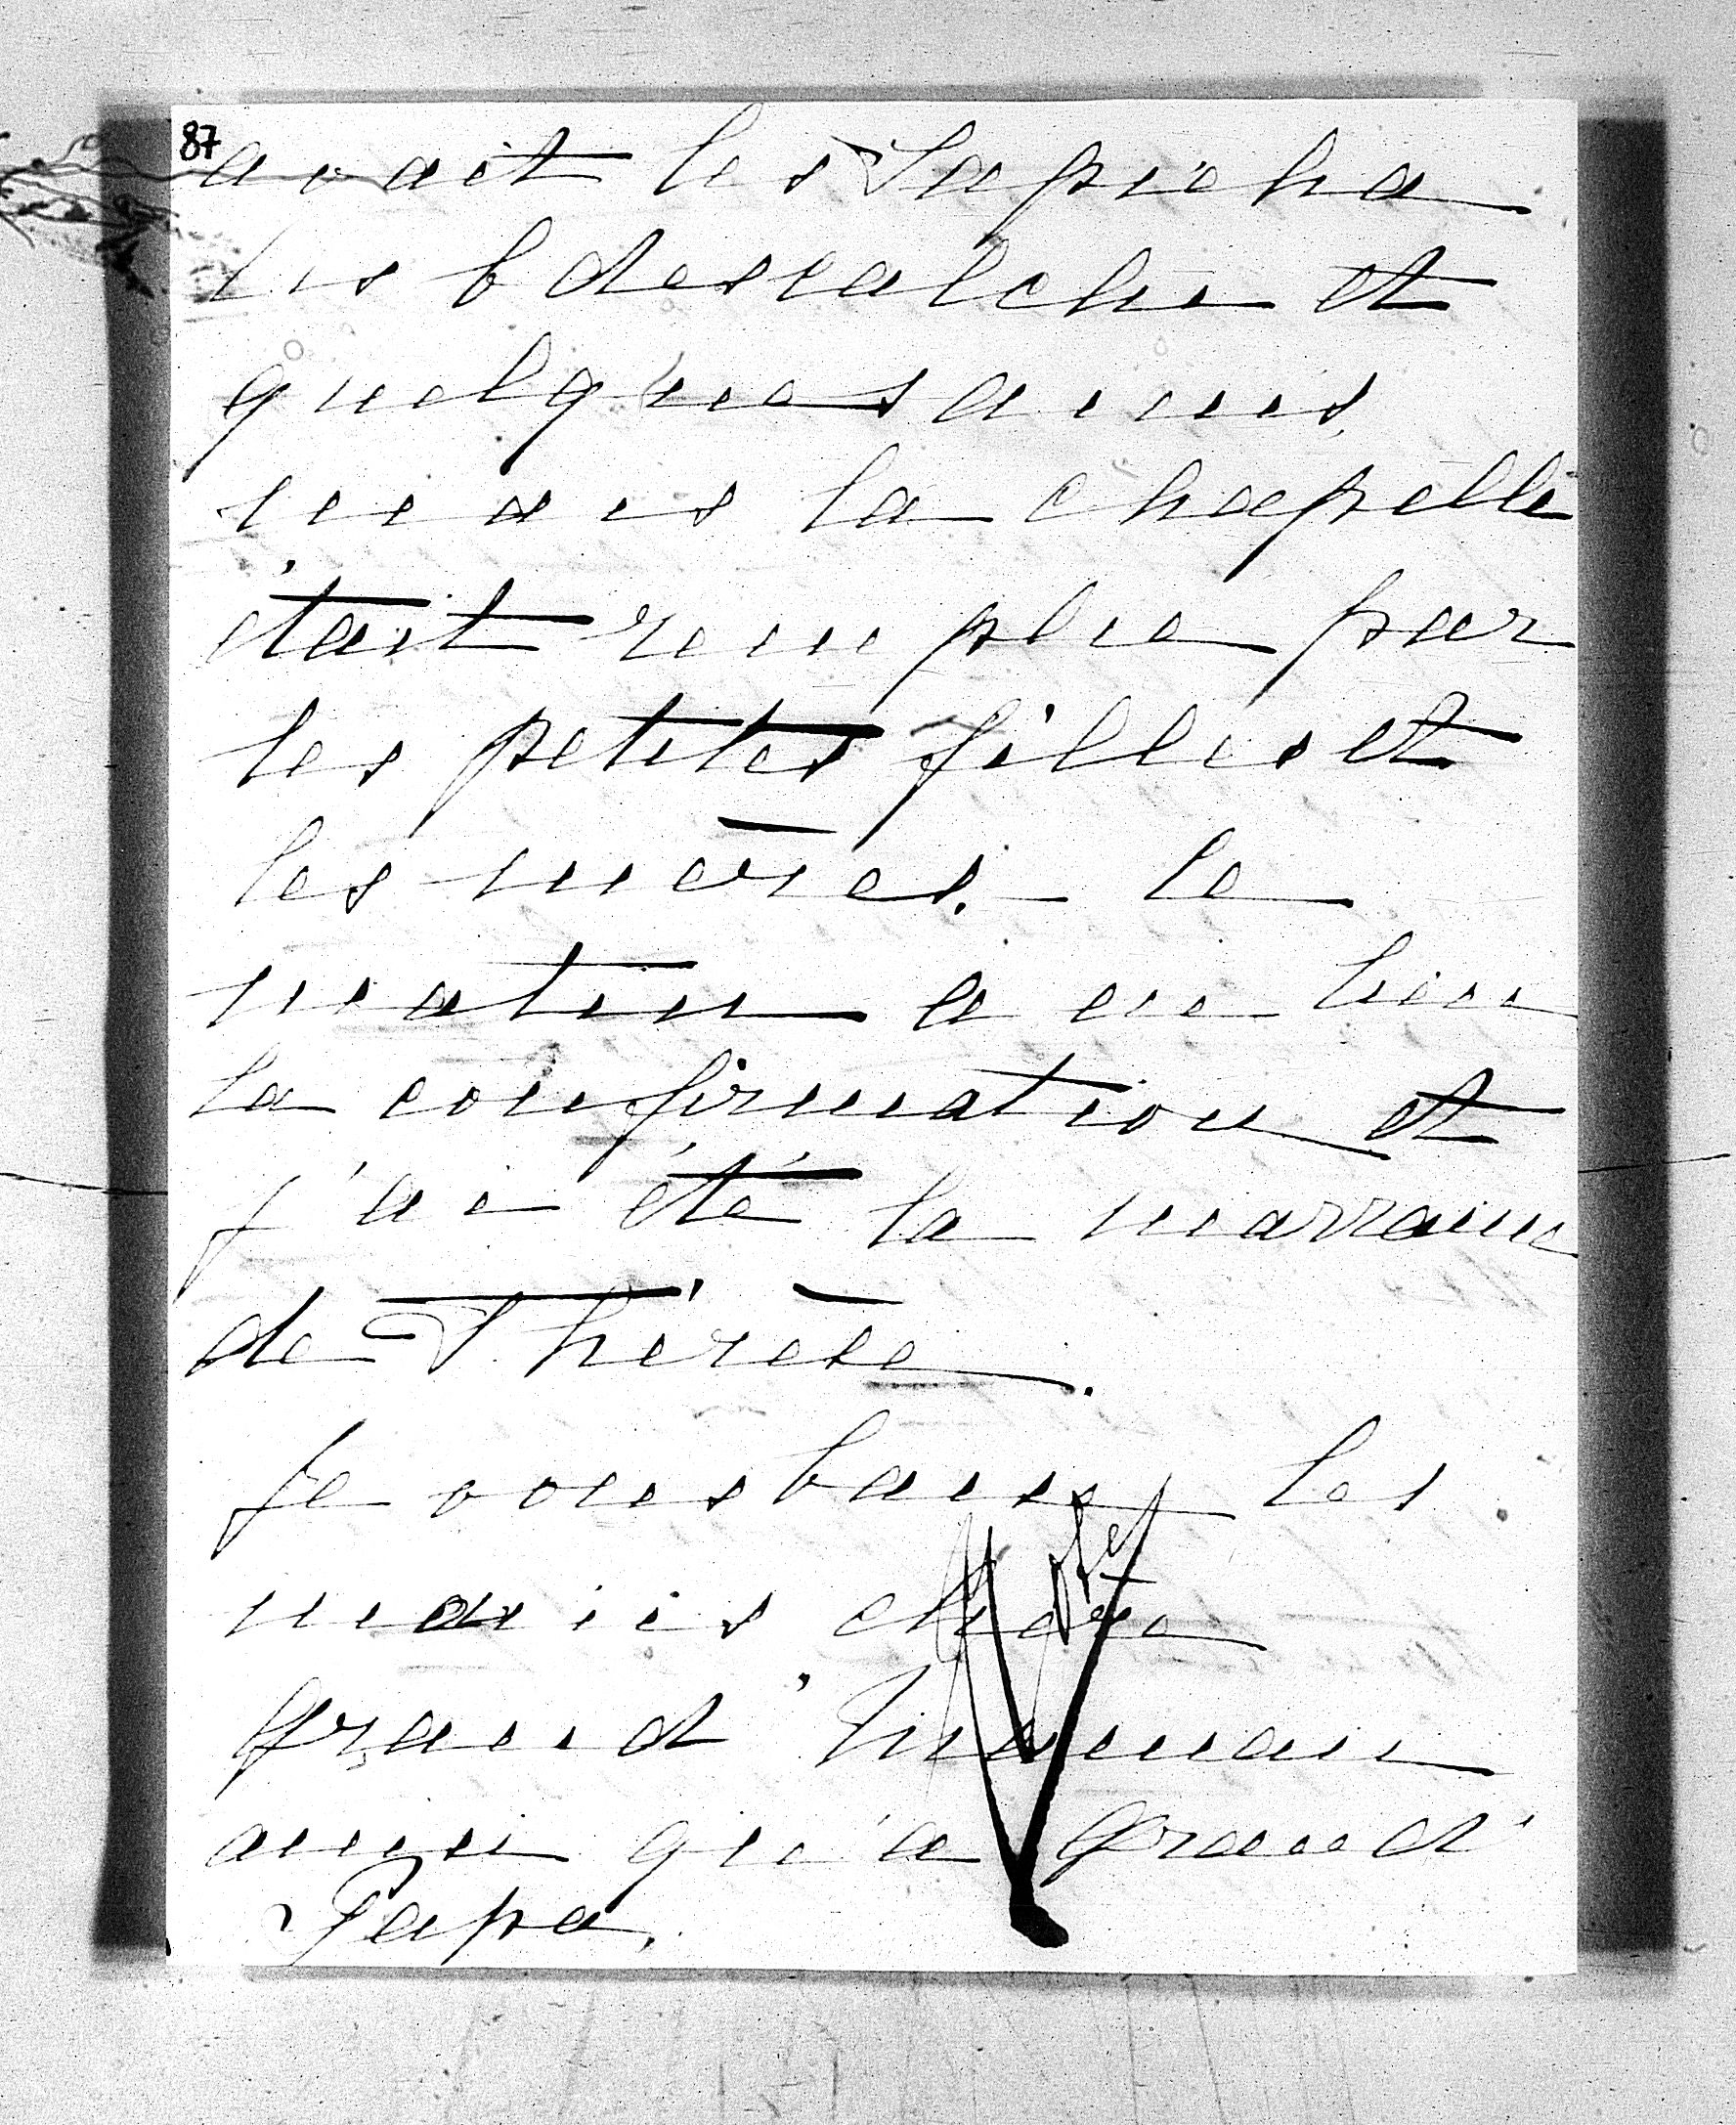 87
avait les Sapieha
les Odescalchi et
quelques amis
mais la chapelle
était remplie par
les petites filles et
les mères. le
matin a eu lieu
la confirmation et
j'ai été la marraine
de Thérèse.
Je vous baise les
mains chère
Grand'Maman
ainsi qu'à Grand'
Papa.